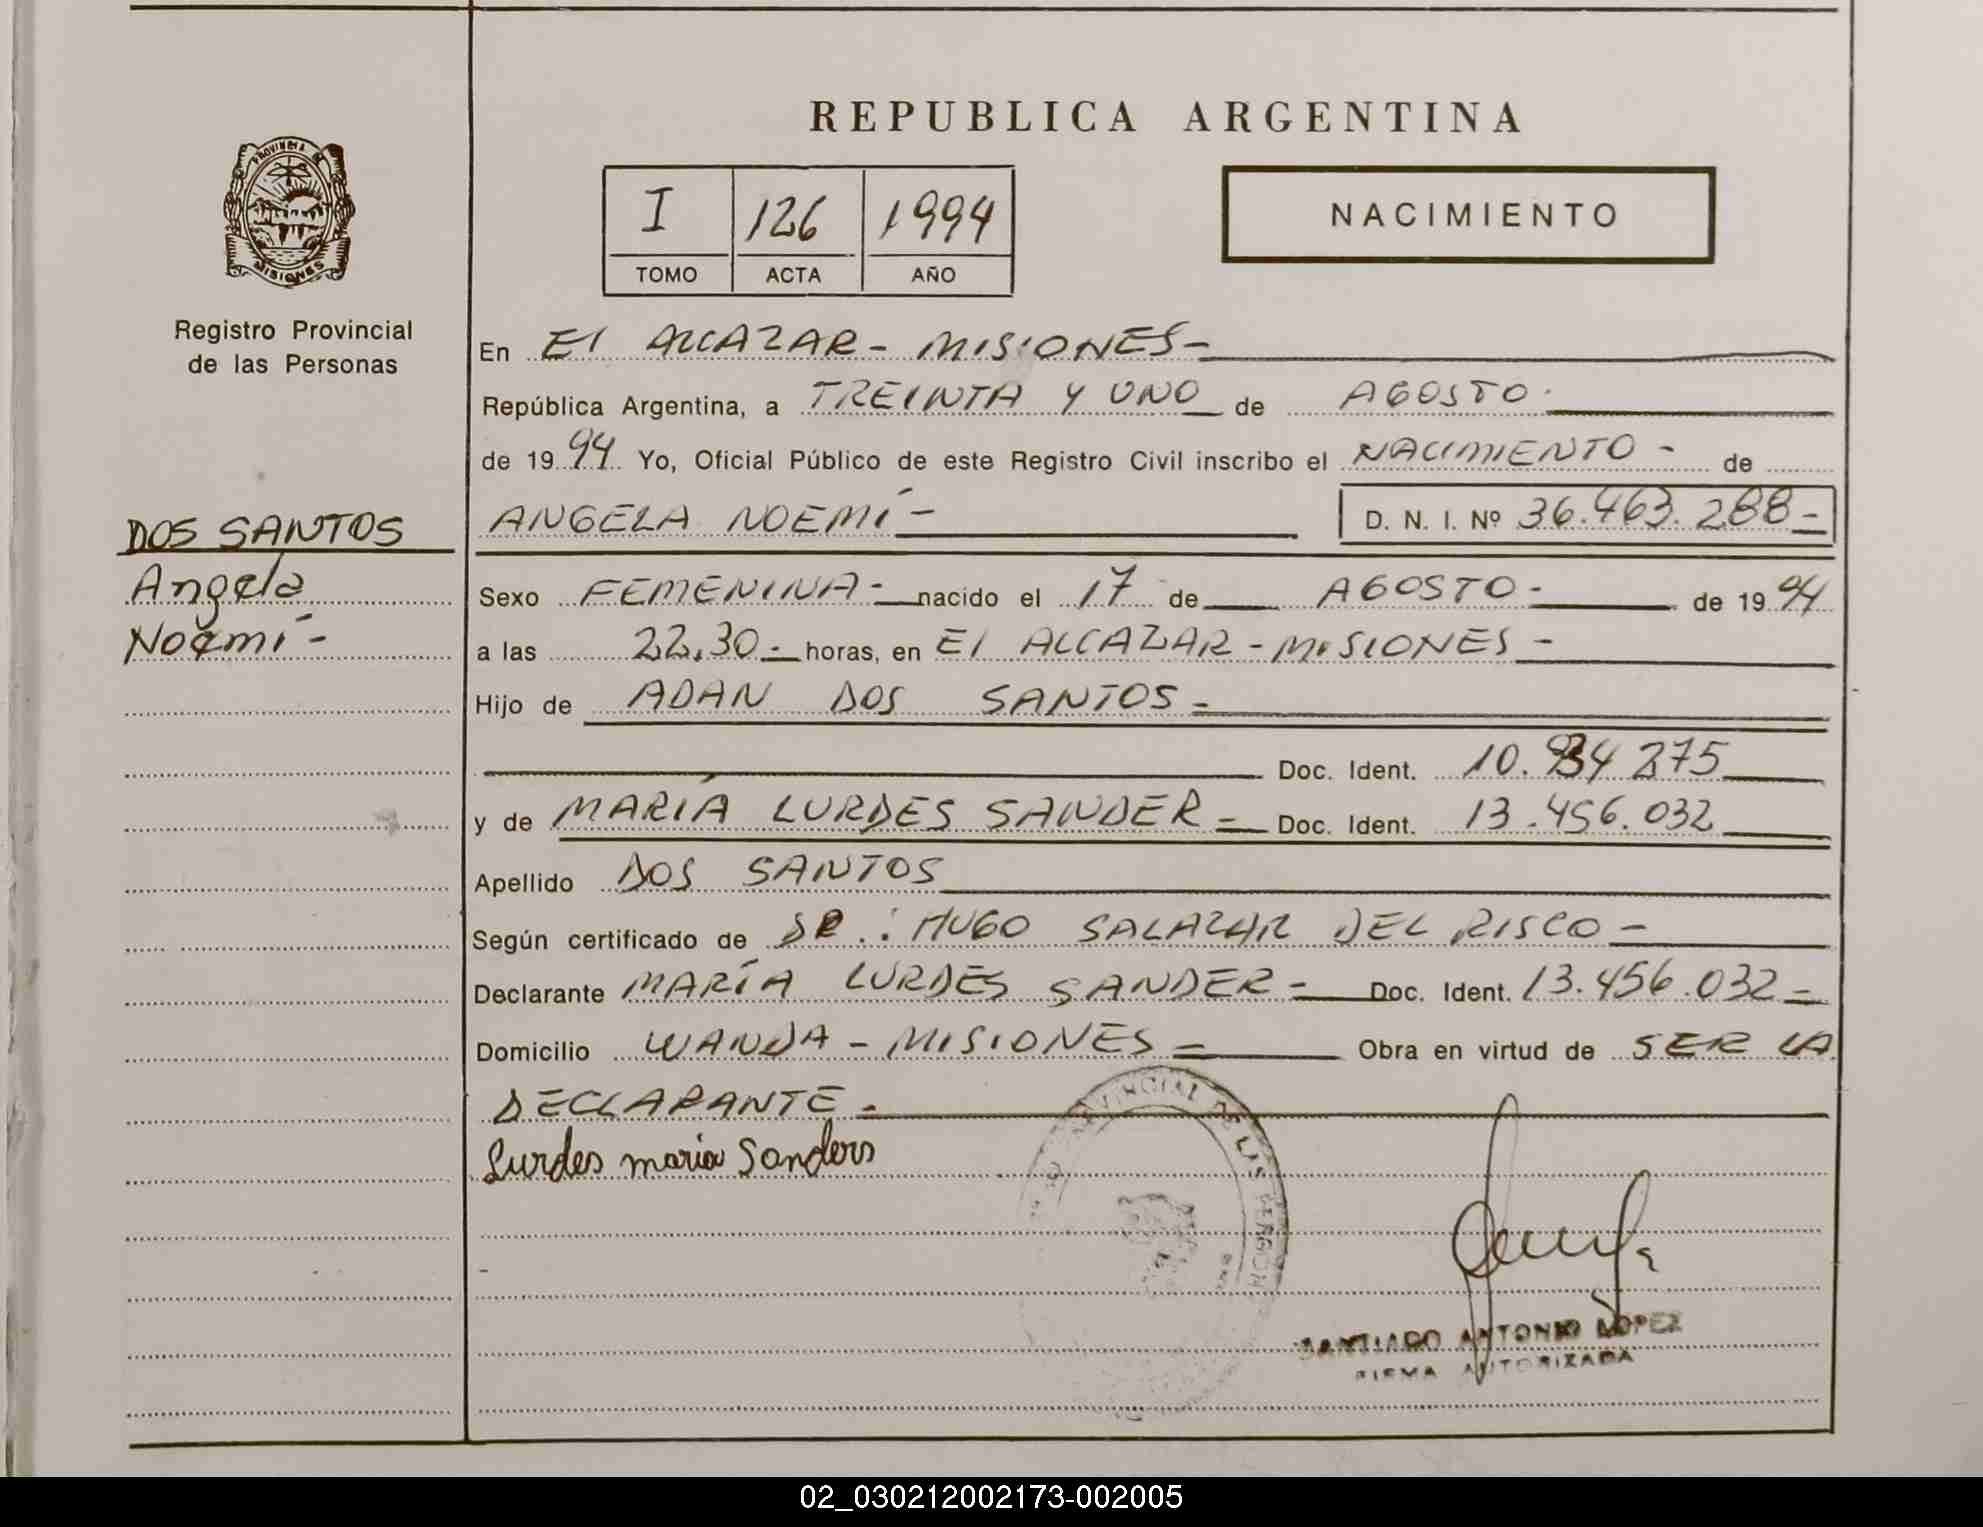 REPUBLICA ARGENTINA
PROVINCIA DE
MISIONES
Registro Provincial
de las Personas
I 126 1994
TOMO ACTA AÑO
NACIMIENTO
En El ALCAZAR - MISIONES -
República Argentina, a TREINTA Y UNO de AGOSTO.
de 1994 Yo, Oficial Público de este Registro Civil inscribo el NACIMIENTO - de
ANGELA NOEMÍ - D. N. I. Nº 36.463.288 -
DOS SANTOS
Angela
Noemí -
Sexo FEMENINA - nacido el 17 de AGOSTO - de 1994
a las 22,30 - horas, en El ALCAZAR - MISIONES -
Hijo de ADAN DOS SANTOS -
Doc. Ident. 10.934 275
y de MARÍA LURDES SANDER - Doc. Ident. 13.456.032
Apellido DOS SANTOS
Según certificado de DR.: HUGO SALAZAR DEL RISCO -
Declarante MARÍA LURDES SANDER - Doc. Ident. 13.456.032 -
Domicilio WANDA - MISIONES - Obra en virtud de SER LA
DECLARANTE -
Lurdes maria Sanders
PROVINCIAL DE LAS PERSON
SANTIAGO ANTONIO LOPEZ
FIRMA AUTORIZADA
02_030212002173-002005